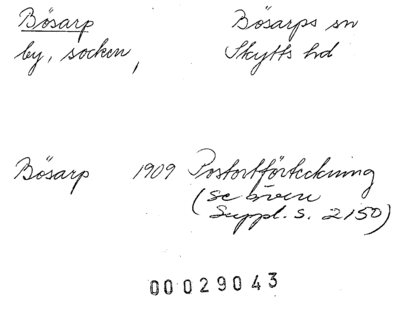 Bösarp Bösarps sn
by, socken, Skytts hd
Bösarp 1909 Postortförteckning
(se även
Suppl. s. 2150)
00029043